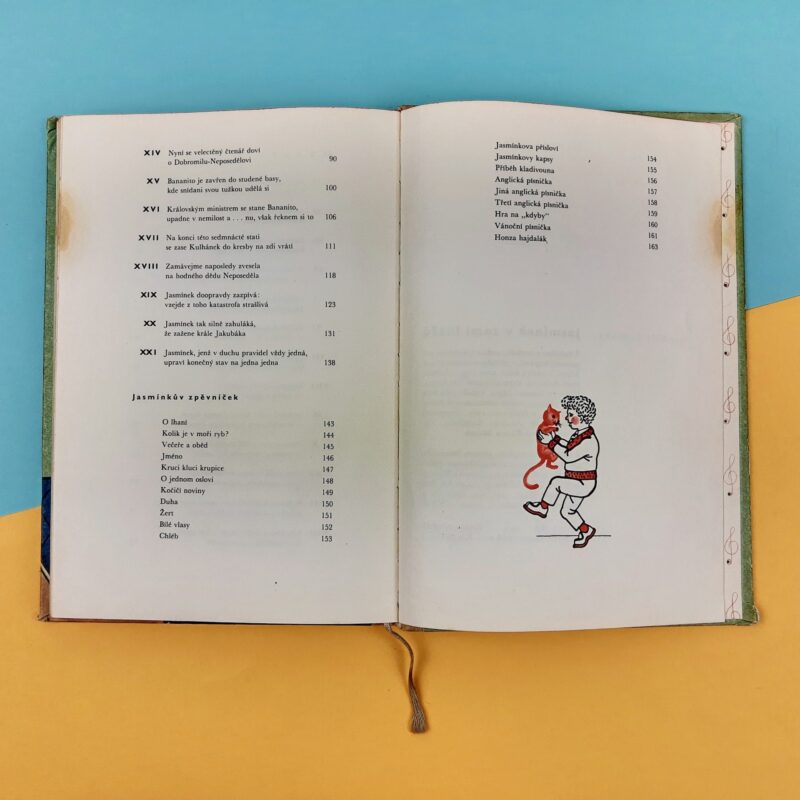 XIV Nyní se velectěný čtenář doví
o Dobromilu-Neposedělovi 90
XV Bananito je zavřen do studené basy,
kde snídani svou tužkou udělá si 100
XVI Královským ministrem se stane Bananito,
upadne v nemilost a . . . nu, však řeknem si to 106
XVII Na konci této sedmnácté stati
se zase Kulhánek do kresby na zdi vrátí 111
XVIII Zamávejme naposledy zvesela
na hodného dědu Neposeděla 118
XIX Jasmínek doopravdy zazpívá:
vzejde z toho katastrofa strašlivá 123
XX Jasmínek tak silně zahuláká,
že zažene krále Jakubáka 131
XXI Jasmínek, jenž v duchu pravidel vždy jedná,
upraví konečný stav na jedna jedna 138
Jasmínkův zpěvníček
O lhaní 143
Kolik je v moři ryb? 144
Večeře a oběd 145
Jméno 146
Kruci kluci krupice 147
O jednom oslovi 148
Kočičí noviny 149
Duha 150
Žert 151
Bílé vlasy 152
Chléb 153
Jasmínkova přísloví 154
Jasmínkovy kapsy 155
Příběh kladivouna 156
Anglická písnička 157
Jiná anglická písnička 158
Třetí anglická písnička 159
Hra na „kdyby" 160
Vánoční písnička 161
Honza hajdalák 163